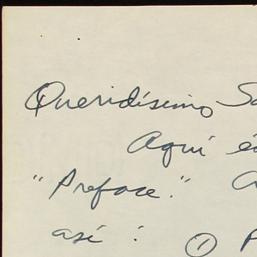 Queridísimo
Aquí
"Preface."
así : ①